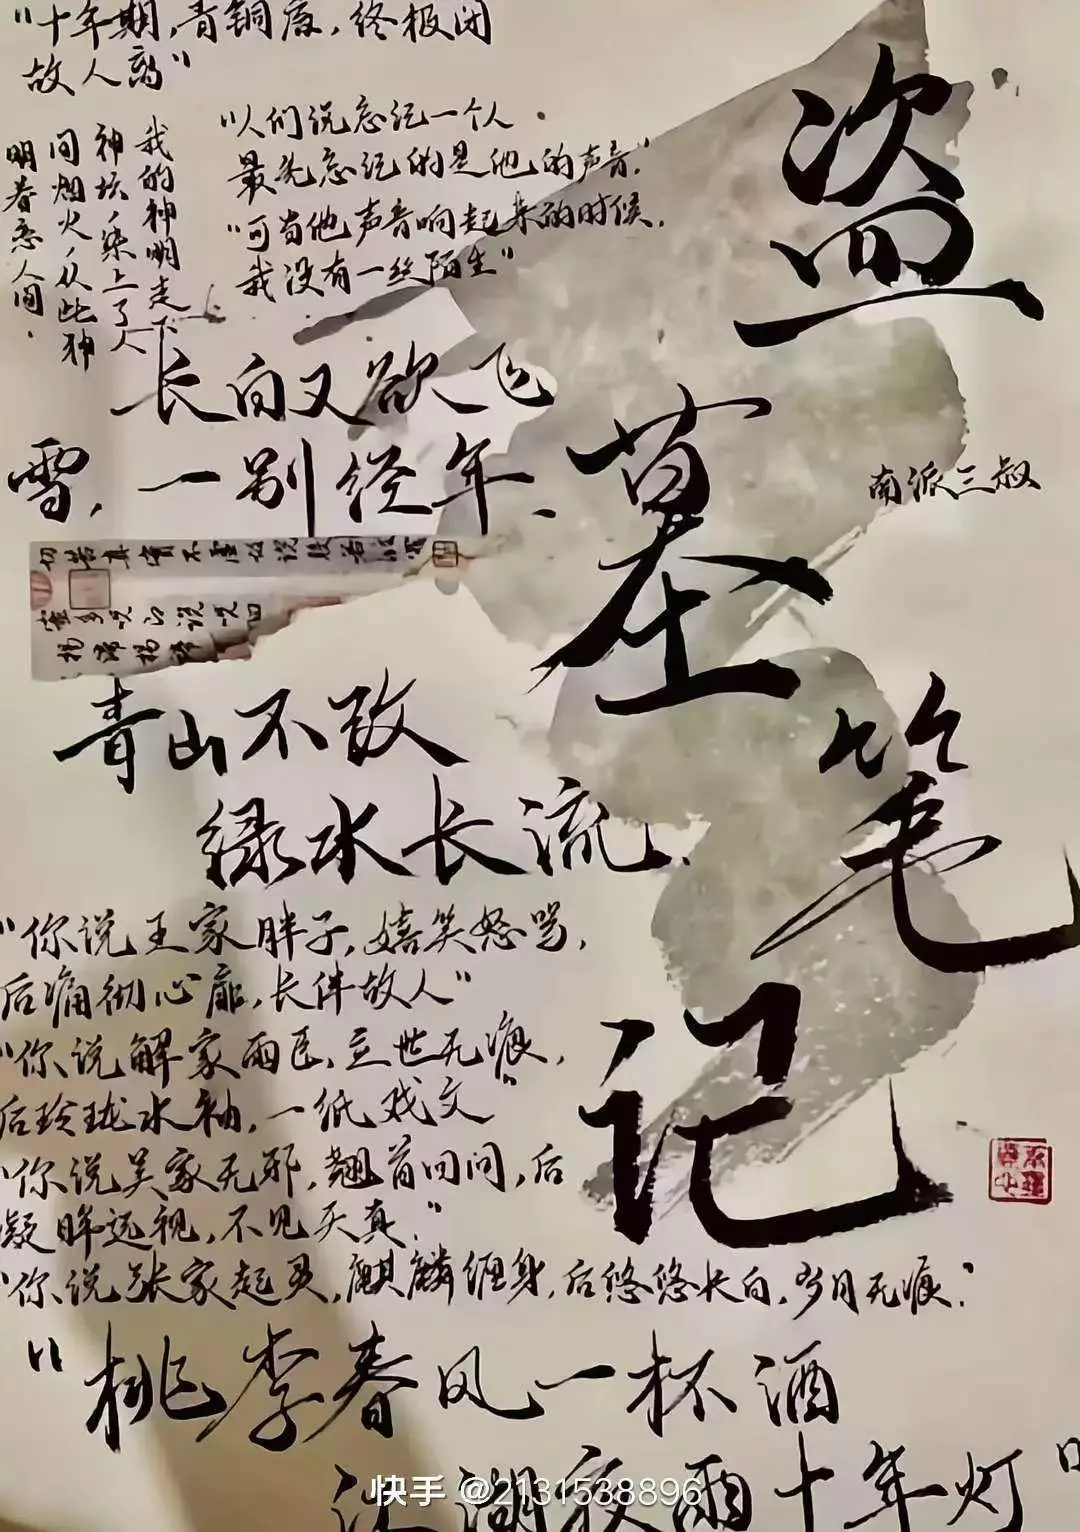 "十年期,青铜门,终极闭
故人离"
"人们说忘记一个人
最先忘记的是他的声音,"
"可当他声音响起来的时候,
我没有一丝陌生"
我的神明走下
神坛,染上了人
间烟火,从此神
明眷恋人间.
盗墓笔记
南派三叔
长白又欲飞
雪,一别经年、
青山不改
绿水长流、
"你说王家胖子,嬉笑怒骂,
后痛彻心扉,长伴故人"
"你说解家雨臣,立世无痕,
后玲珑水袖,一纸戏文"
"你说吴家无邪,翘首回问,后
凝眸远视,不见天真."
"你说张家起灵,麒麟缠身,后悠悠长白,岁月无痕."
"桃李春风一杯酒
江湖夜雨十年灯"
快手 @2131538896